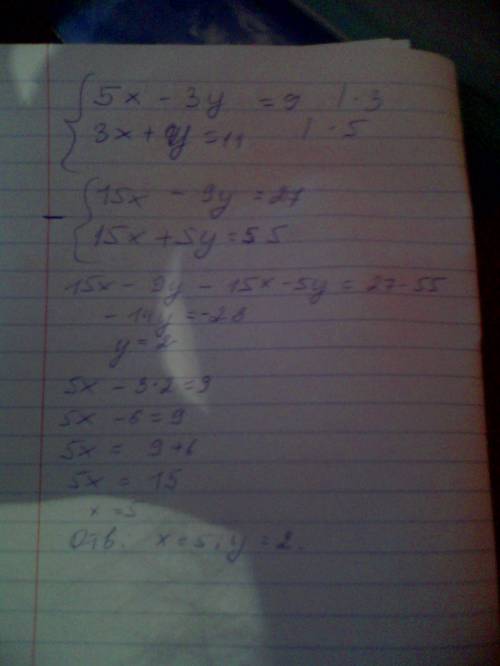 5x - 3y = 9 | · 3
3x + y = 11 | · 5
- 15x - 9y = 27
15x + 5y = 55
15x - 9y - 15x - 5y = 27 - 55
- 14y = -28
y = 2
5x - 3·2 = 9
5x - 6 = 9
5x = 9 + 6
5x = 15
x = 5
Отв. x = 5, y = 2.